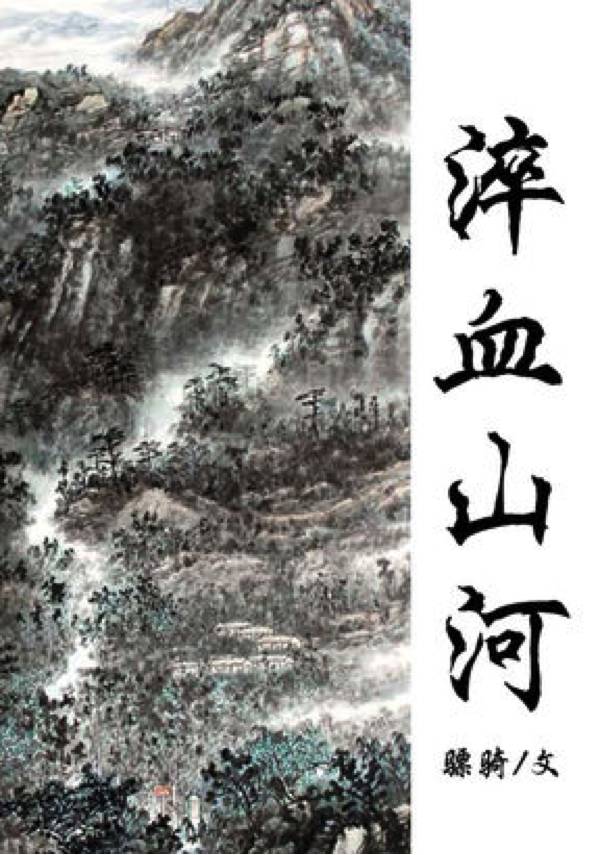 淬血山河
骠骑/文